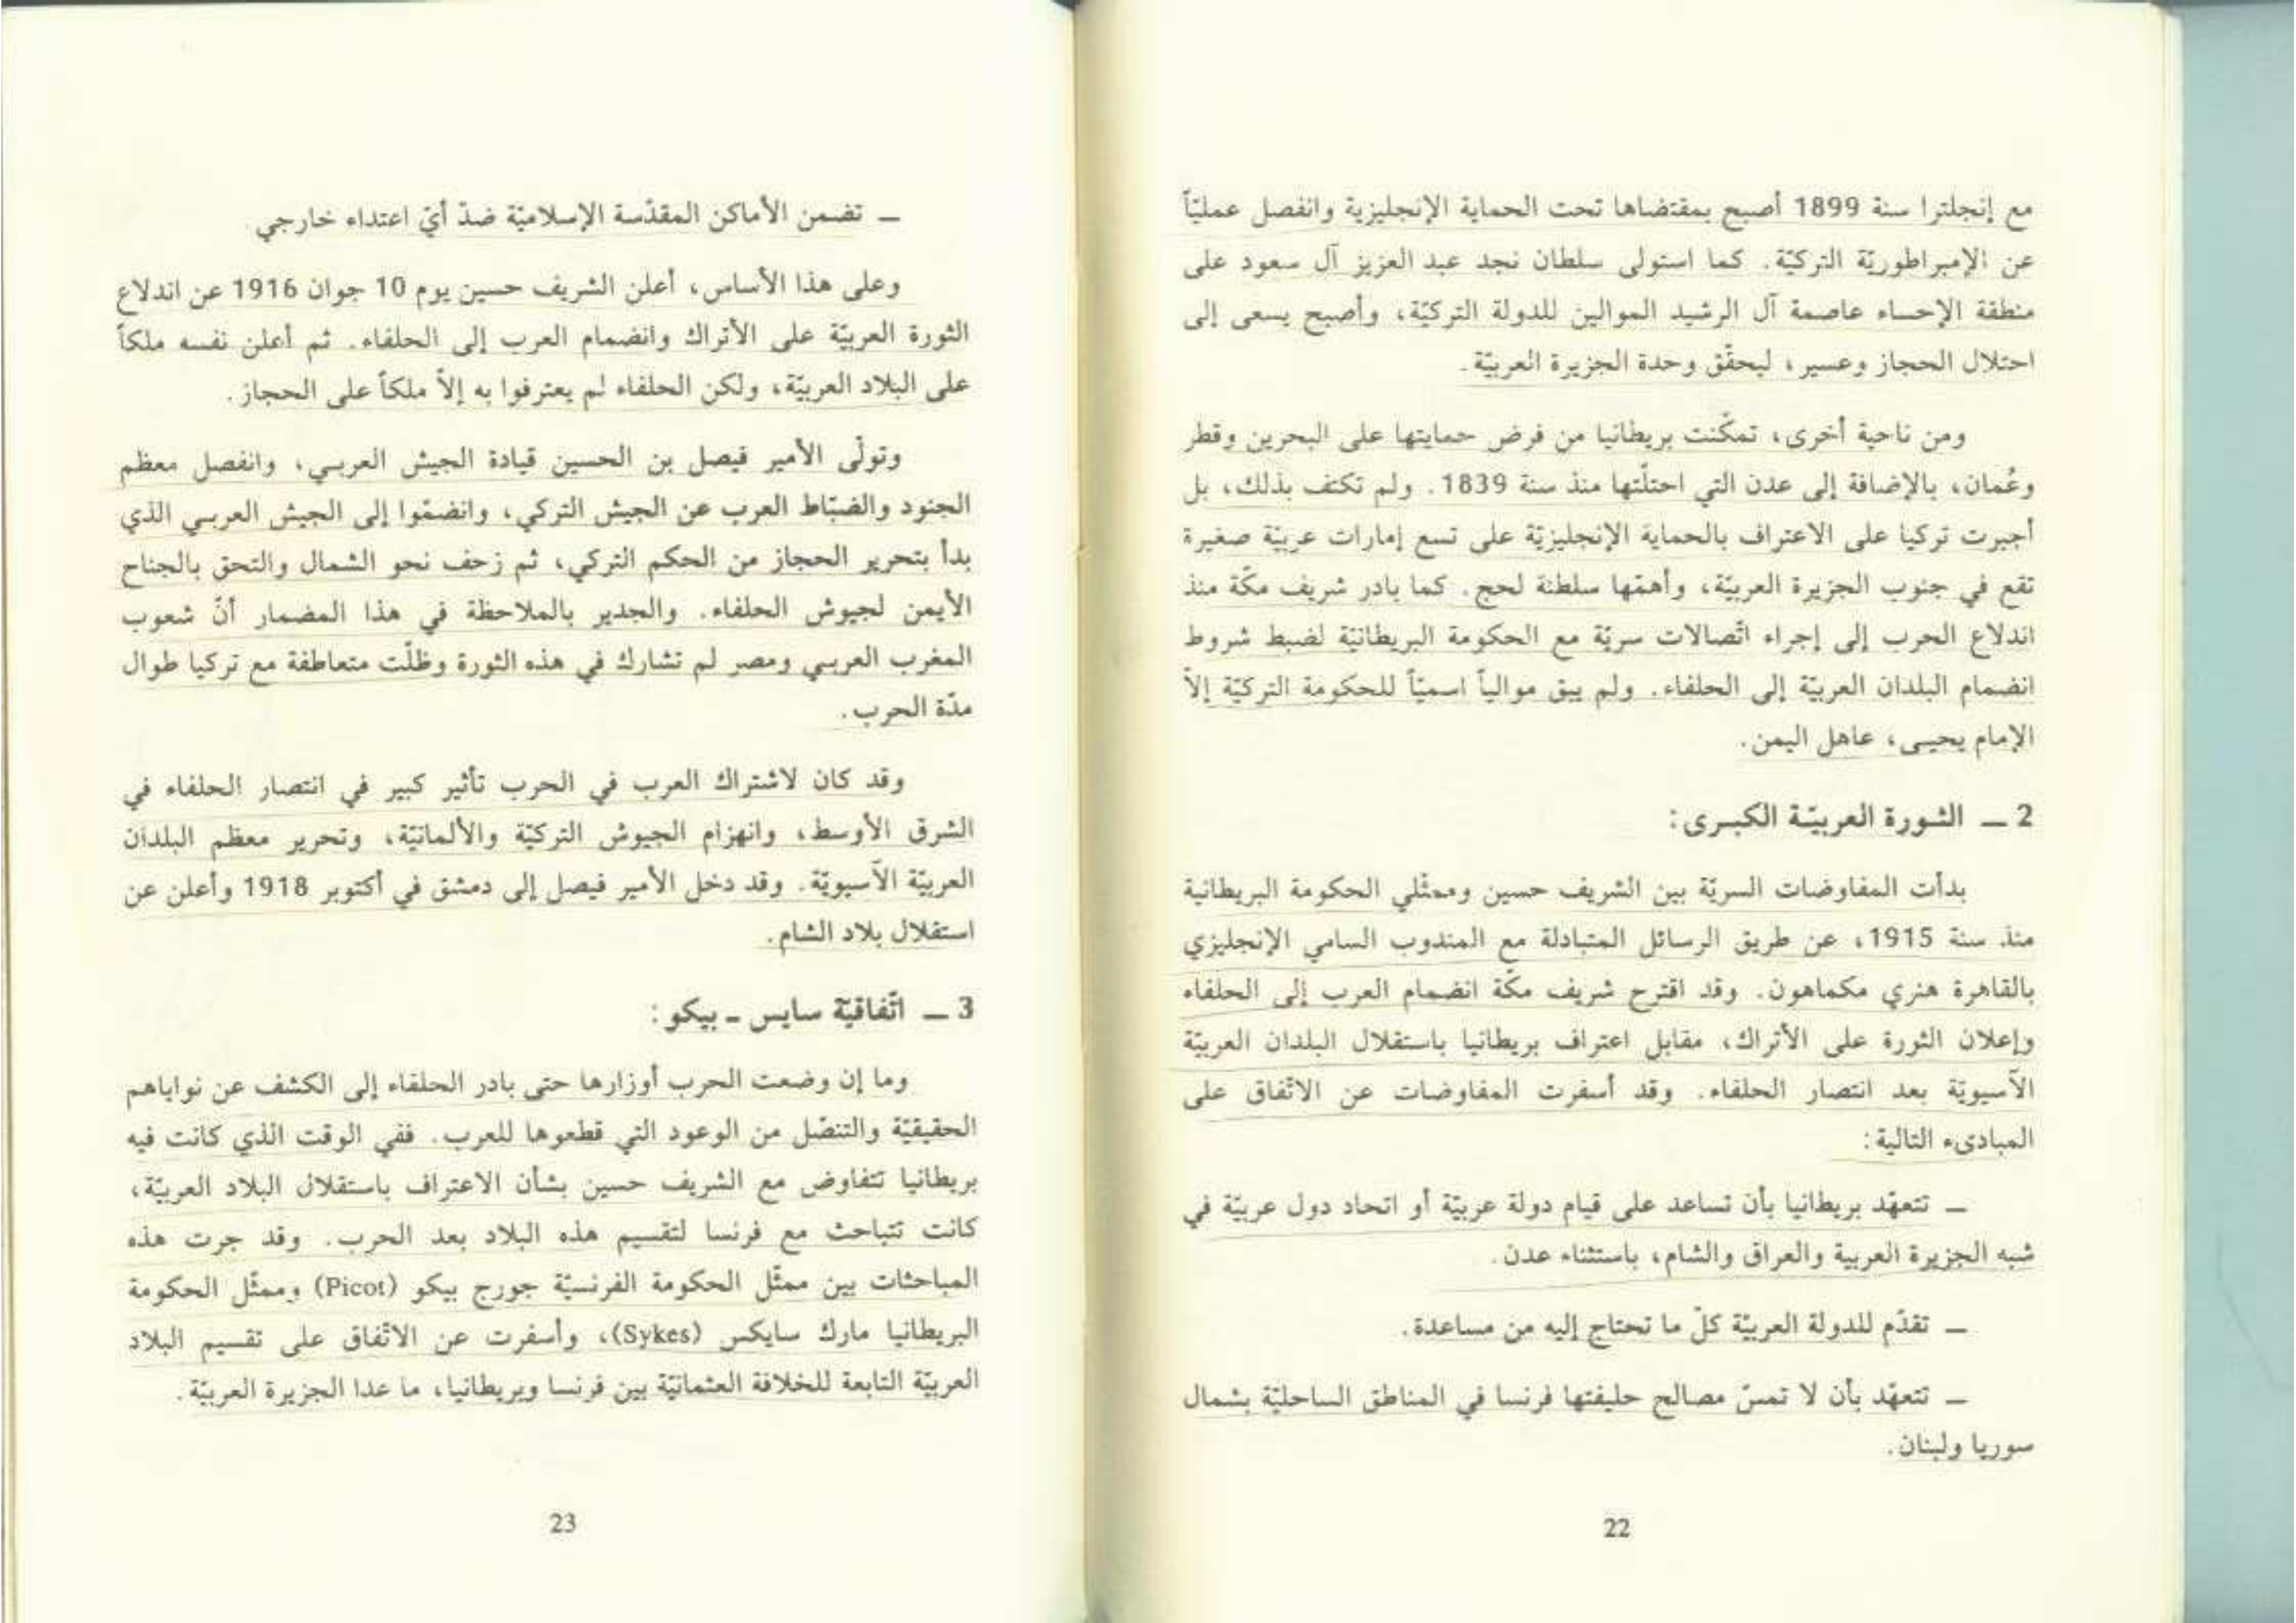 مع إنجلترا سنة 1899 أصبح بمقتضاها تحت الحماية الإنجليزية وانفصل عمليّاً
عن الإمبراطوريّة التركيّة. كما استولى سلطان نجد عبد العزيز آل سعود على
منطقة الإحساء عاصمة آل الرشيد الموالين للدولة التركيّة، وأصبح يسعى إلى
احتلال الحجاز وعسير، ليحقّق وحدة الجزيرة العربيّة.
ومن ناحية أخرى، تمكّنت بريطانيا من فرض حمايتها على البحرين وقطر
وعُمان، بالإضافة إلى عدن التي احتلّتها منذ سنة 1839. ولم تكتف بذلك، بل
أجبرت تركيا على الاعتراف بالحماية الإنجليزيّة على تسع إمارات عربيّة صغيرة
تقع في جنوب الجزيرة العربيّة، وأهمّها سلطنة لحج. كما بادر شريف مكّة منذ
اندلاع الحرب إلى إجراء اتّصالات سريّة مع الحكومة البريطانيّة لضبط شروط
انضمام البلدان العربيّة إلى الحلفاء. ولم يبق موالياً اسميّاً للحكومة التركيّة إلاّ
الإمام يحيى، عاهل اليمن.
2 ــ الثورة العربيّة الكبرى:
بدأت المفاوضات السريّة بين الشريف حسين وممثّلي الحكومة البريطانية
منذ سنة 1915، عن طريق الرسائل المتبادلة مع المندوب السامي الإنجليزي
بالقاهرة هنري مكماهون. وقد اقترح شريف مكّة انضمام العرب إلى الحلفاء
وإعلان الثورة على الأتراك، مقابل اعتراف بريطانيا باستقلال البلدان العربيّة
الآسيويّة بعد انتصار الحلفاء. وقد أسفرت المفاوضات عن الاتّفاق على
المبادىء التالية:
ــ تتعهّد بريطانيا بأن تساعد على قيام دولة عربيّة أو اتحاد دول عربيّة في
شبه الجزيرة العربية والعراق والشام، باستثناء عدن.
ــ تقدّم للدولة العربيّة كلّ ما تحتاج إليه من مساعدة.
ــ تتعهّد بأن لا تمسّ مصالح حليفتها فرنسا في المناطق الساحليّة بشمال
سوريا ولبنان.
22
ــ تضمن الأماكن المقدّسة الإسلاميّة ضدّ أيّ اعتداء خارجي.
وعلى هذا الأساس، أعلن الشريف حسين يوم 10 جوان 1916 عن اندلاع
الثورة العربيّة على الأتراك وانضمام العرب إلى الحلفاء. ثم أعلن نفسه ملكاً
على البلاد العربيّة، ولكن الحلفاء لم يعترفوا به إلاّ ملكاً على الحجاز.
وتولّى الأمير فيصل بن الحسين قيادة الجيش العربي، وانفصل معظم
الجنود والضبّاط العرب عن الجيش التركي، وانضمّوا إلى الجيش العربي الذي
بدأ بتحرير الحجاز من الحكم التركي، ثم زحف نحو الشمال والتحق بالجناح
الأيمن لجيوش الحلفاء. والجدير بالملاحظة في هذا المضمار أنّ شعوب
المغرب العربي ومصر لم تشارك في هذه الثورة وظلّت متعاطفة مع تركيا طوال
مدّة الحرب.
وقد كان لاشتراك العرب في الحرب تأثير كبير في انتصار الحلفاء في
الشرق الأوسط، وانهزام الجيوش التركيّة والألمانيّة، وتحرير معظم البلدان
العربيّة الآسيويّة. وقد دخل الأمير فيصل إلى دمشق في أكتوبر 1918 وأعلن عن
استقلال بلاد الشام.
3 ــ اتّفاقيّة سايس ـ بيكو:
وما إن وضعت الحرب أوزارها حتى بادر الحلفاء إلى الكشف عن نواياهم
الحقيقيّة والتنصّل من الوعود التي قطعوها للعرب. ففي الوقت الذي كانت فيه
بريطانيا تتفاوض مع الشريف حسين بشأن الاعتراف باستقلال البلاد العربيّة،
كانت تتباحث مع فرنسا لتقسيم هذه البلاد بعد الحرب. وقد جرت هذه
المباحثات بين ممثّل الحكومة الفرنسيّة جورج بيكو (Picot) وممثّل الحكومة
البريطانيا مارك سايكس (Sykes)، وأسفرت عن الاتّفاق على تقسيم البلاد
العربيّة التابعة للخلافة العثمانيّة بين فرنسا وبريطانيا، ما عدا الجزيرة العربيّة.
23